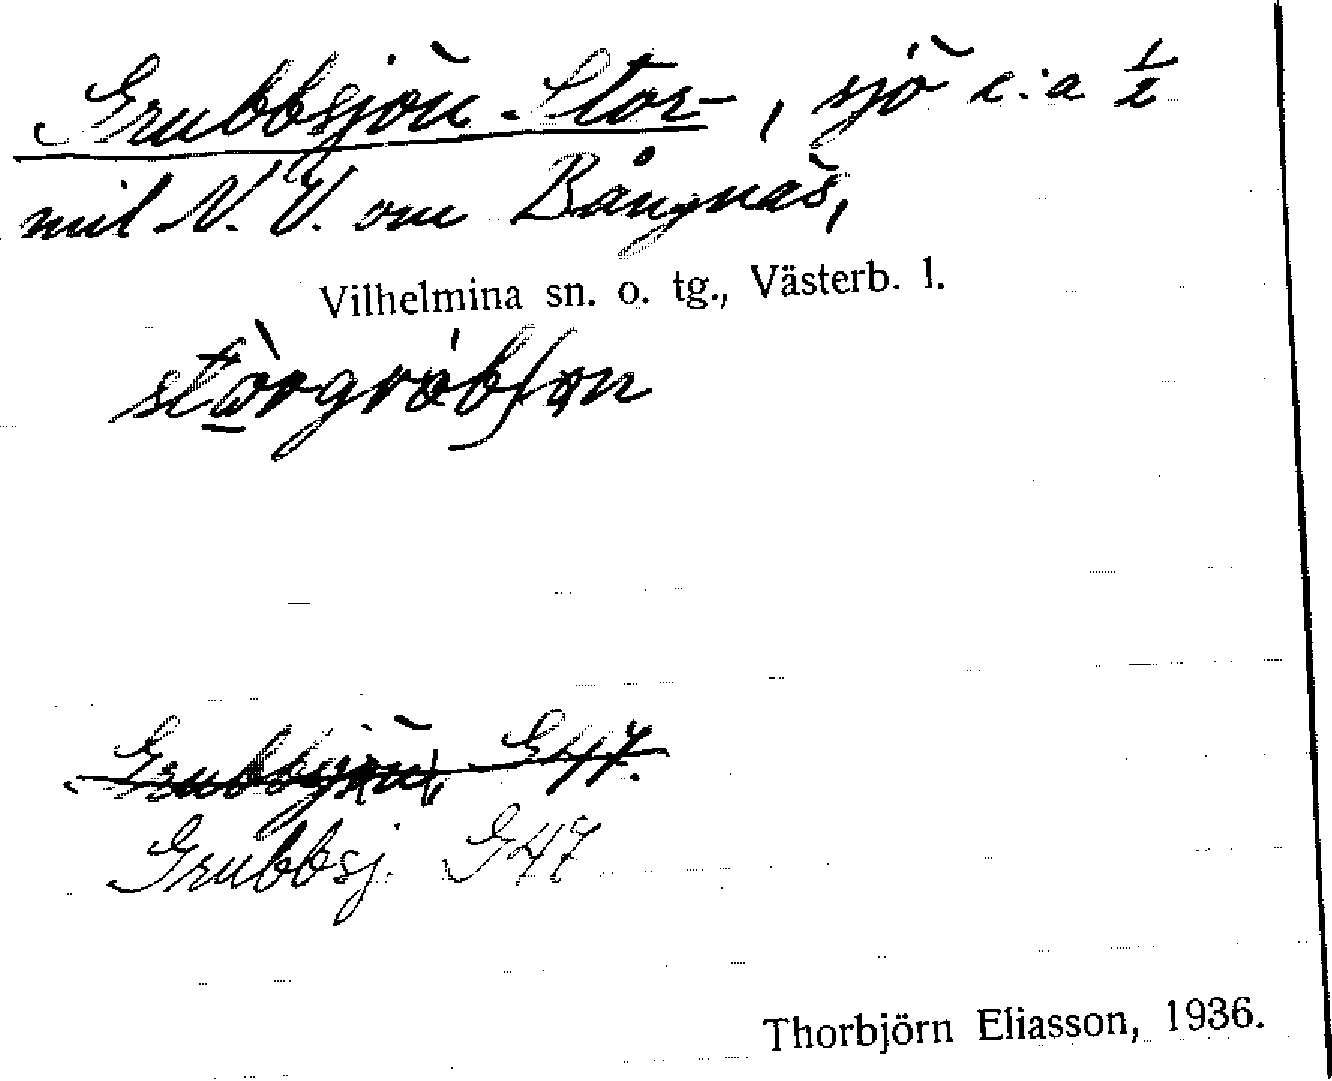 Grubbsjön, Stor-, sjö c:a 1/2
mil N.V. om Bångnäs,
Vilhelmina sn. o. tg., Västerb. l.
Grubbsjön, G47.
Grubbsj. G47
Thorbjörn Eliasson, 1936.